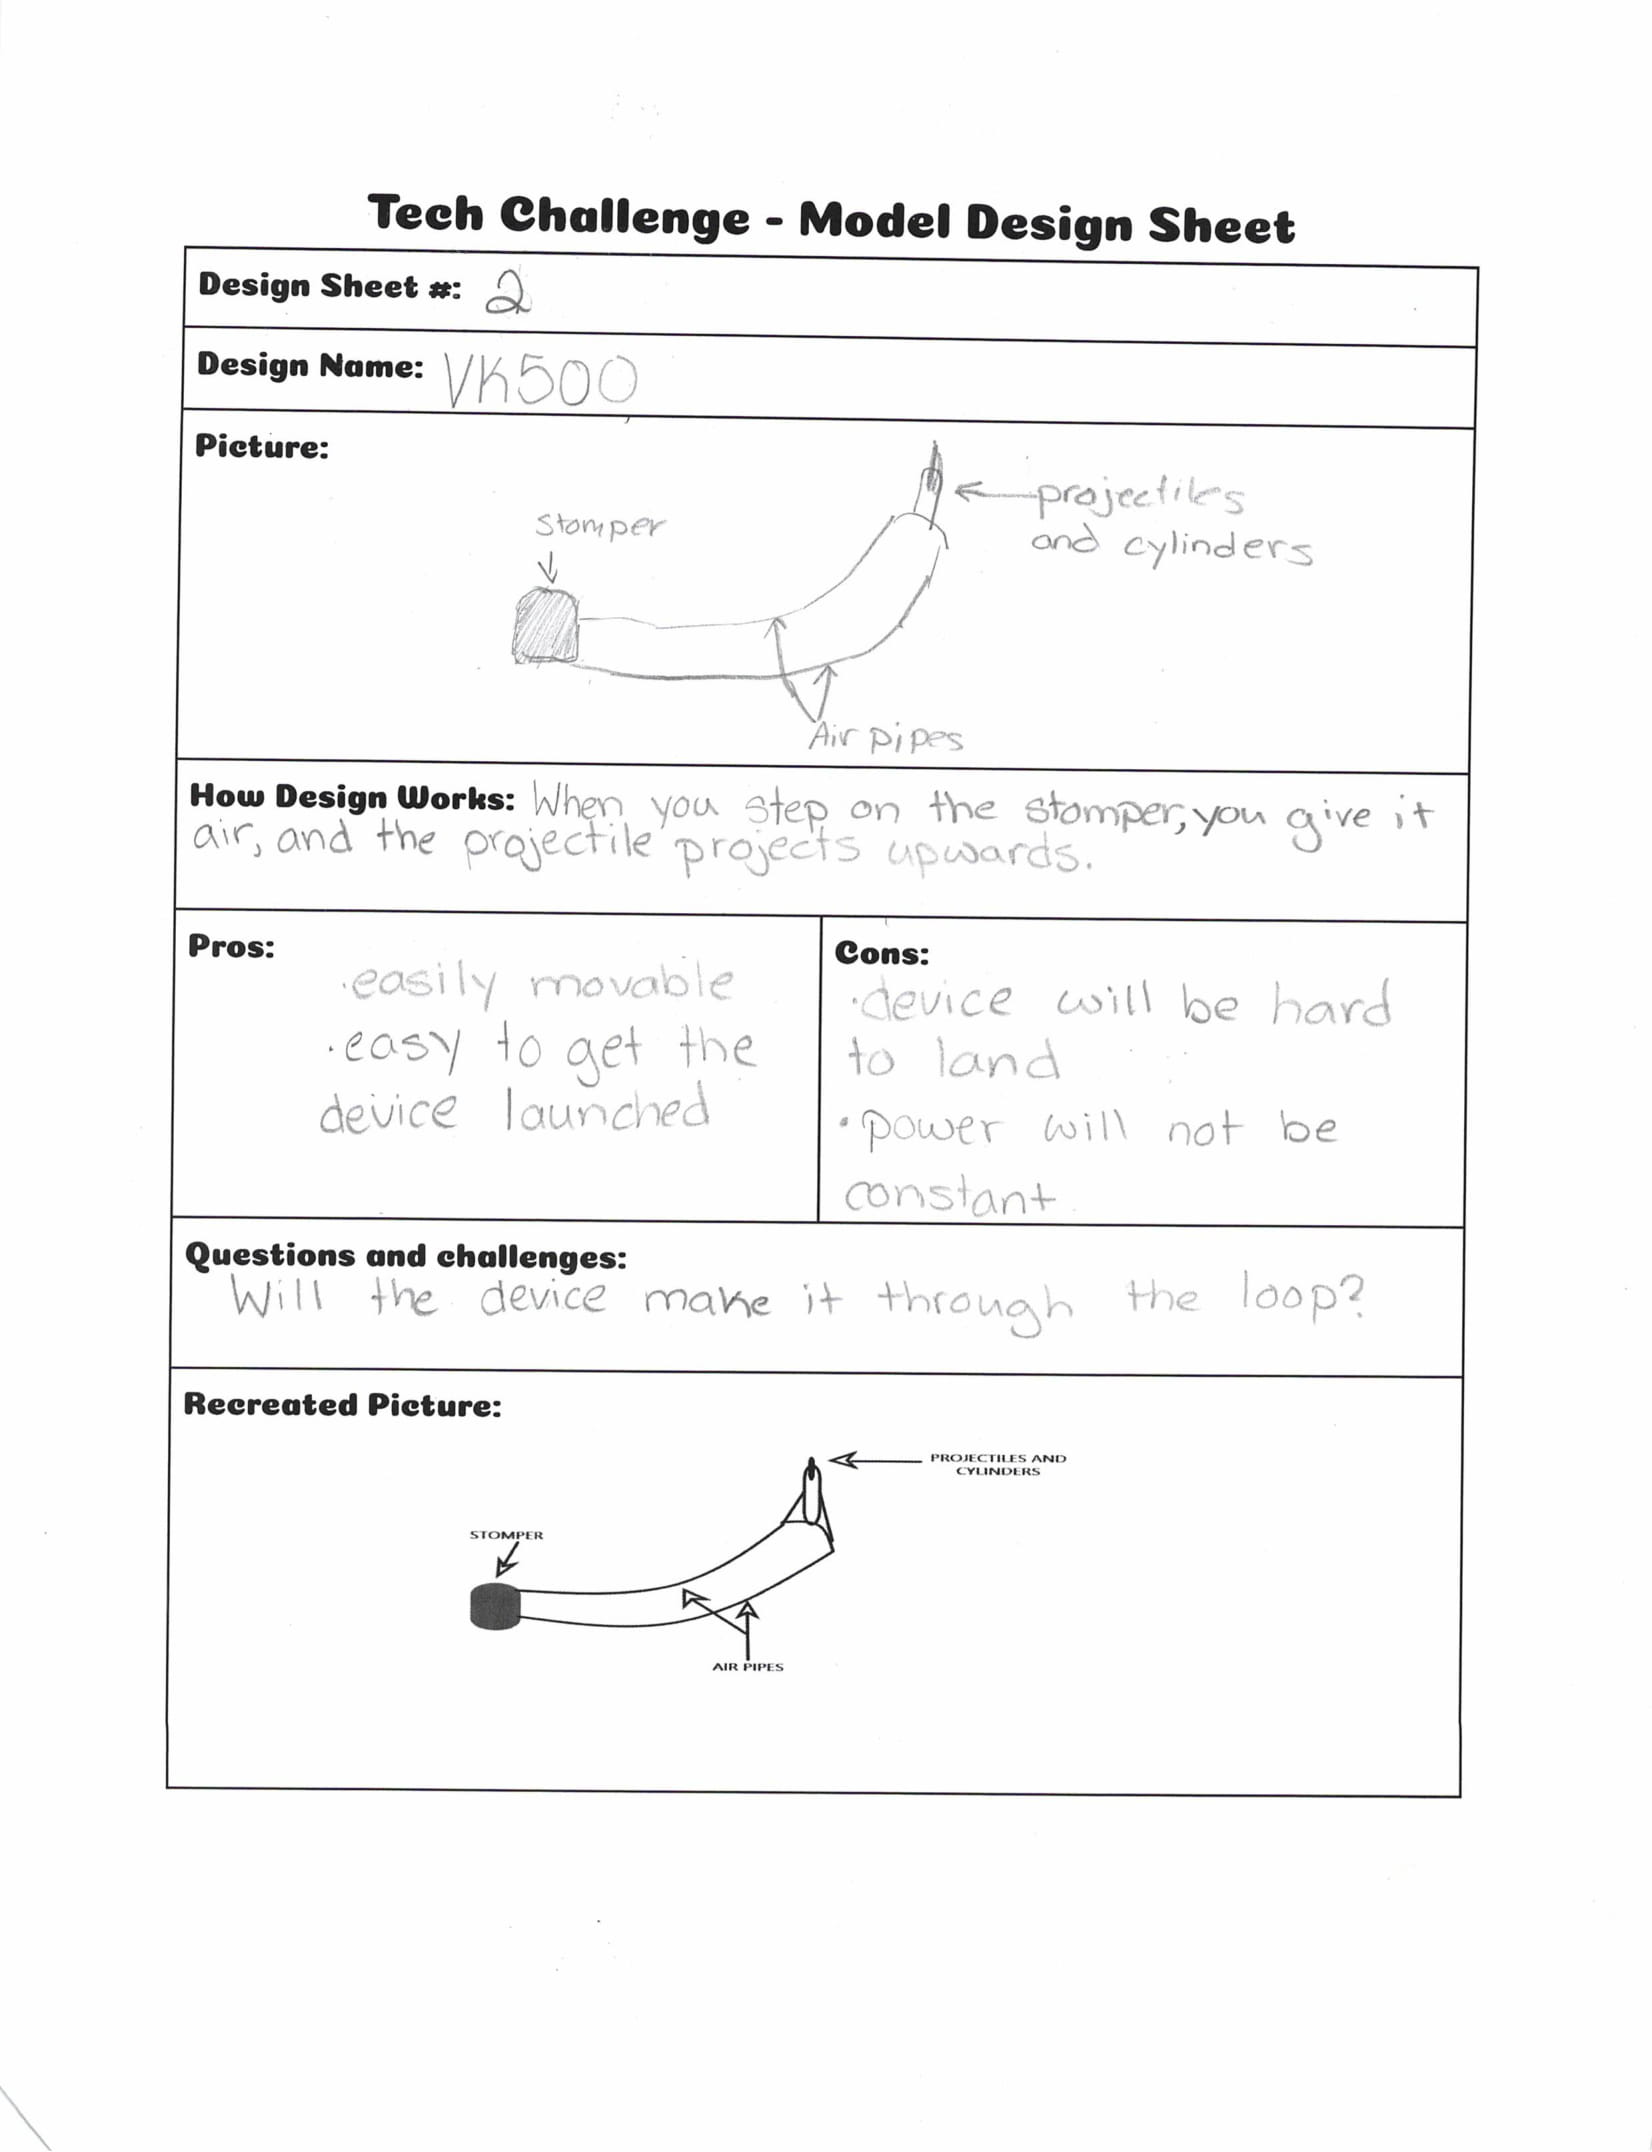 Tech Challenge - Model Design Sheet
Design Sheet #: 2
Design Name: VK500
Picture:
projectiles
and cylinders
Stomper
Air pipes
How Design Works: When you step on the stomper, you give it
air, and the projectile projects upwards.
Pros:
·easily movable
·easy to get the
device launched
Cons:
·device will be hard
to land
·power will not be
constant
Questions and challenges:
Will the device make it through the loop?
Recreated Picture:
PROJECTILES AND
CYLINDERS
STOMPER
AIR PIPES